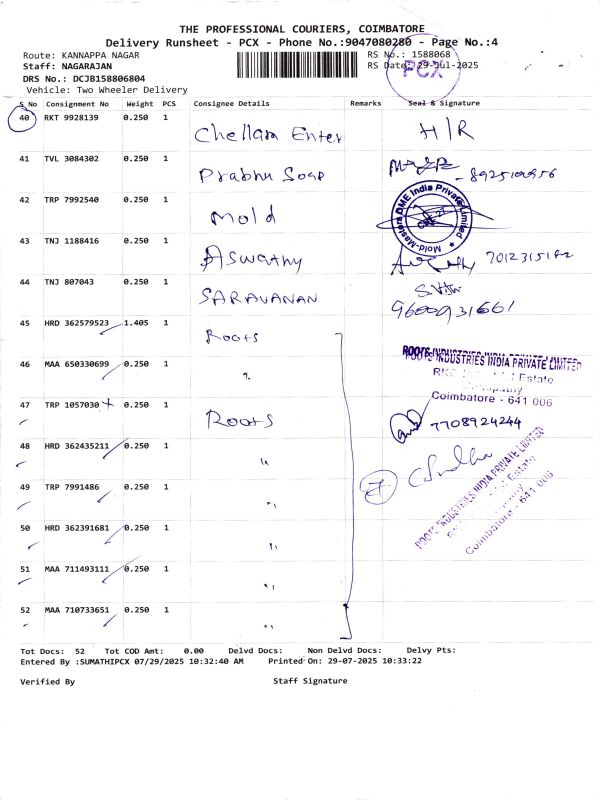 THE PROFESSIONAL COURIERS, COIMBATORE
Delivery Runsheet - PCX - Phone No.:9047080280 - Page No.:4
Route: KANNAPPA NAGAR RS No.: 1588068
Staff: NAGARAJAN RS Date: 29-Jul-2025
PCX
DRS No.: DCJB158806804
Vehicle: Two Wheeler Delivery
S No Consignment No Weight PCS Consignee Details Remarks Seal & Signature
40 RKT 9928139 0.250 1 Chellam Enter H/R
41 TVL 3084302 0.250 1 Prabhu Soap
42 TRP 7992540 0.250 1 Mold Mold-Masters DME India Private Limited
43 TNJ 1188416 0.250 1 Aswathy
44 TNJ 807043 0.250 1 SARAVANAN 9600931661
45 HRD 362579523 1.405 1 Roots
46 MAA 650330699 0.250 1 "
ROOTS INDUSTRIES INDIA PRIVATE LIMITED
Estate
Coimbatore - 641 006
47 TRP 1057030 0.250 1 Roots 7708924244
48 HRD 362435211 0.250 1 "
49 TRP 7991486 0.250 1 " 7
ROOTS INDUSTRIES INDIA PRIVATE LIMITED
Estate
Coimbatore - 641 006
50 HRD 362391681 0.250 1 "
51 MAA 711493111 0.250 1 "
52 MAA 710733651 0.250 1 "
Tot Docs: 52 Tot COD Amt: 0.00 Delvd Docs: Non Delvd Docs: Delvy Pts:
Entered By :SUMATHIPCX 07/29/2025 10:32:40 AM Printed On: 29-07-2025 10:33:22
Verified By Staff Signature